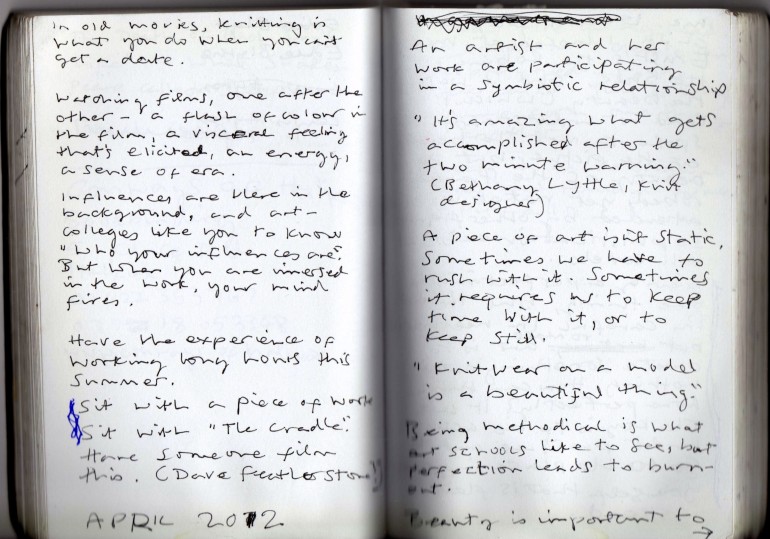 In old movies, knitting is
what you do when you can't
get a date.
Watching films, one after the
other – a flash of colour in
the film, a visceral feeling
that's elicited, an energy,
a sense of era.
Influences are there in the
background, and art-
colleges like you to know
"who your influences are".
But when you are imersed
in the work, your mind
fires.
Have the experience of
working long hours this
summer.
Sit with a piece of work
Sit with "The Cradle".
Have someone film
this. (Dave Featherstone)
APRIL 2012
An artist and her
work are participating
in a symbiotic relationship
"It's amazing what gets
accomplished after the
two minute warning."
(Bethany Lyttle, knit
designer)
A piece of art isn't static,
Sometimes we have to
rush with it. Sometimes
it requires us to keep
time with it, or to
keep still.
"Knitwear on a model
is a beautiful thing."
Being methodical is what
art schools like to see, but
perfection leads to burn-
out.
Beauty is important to
→